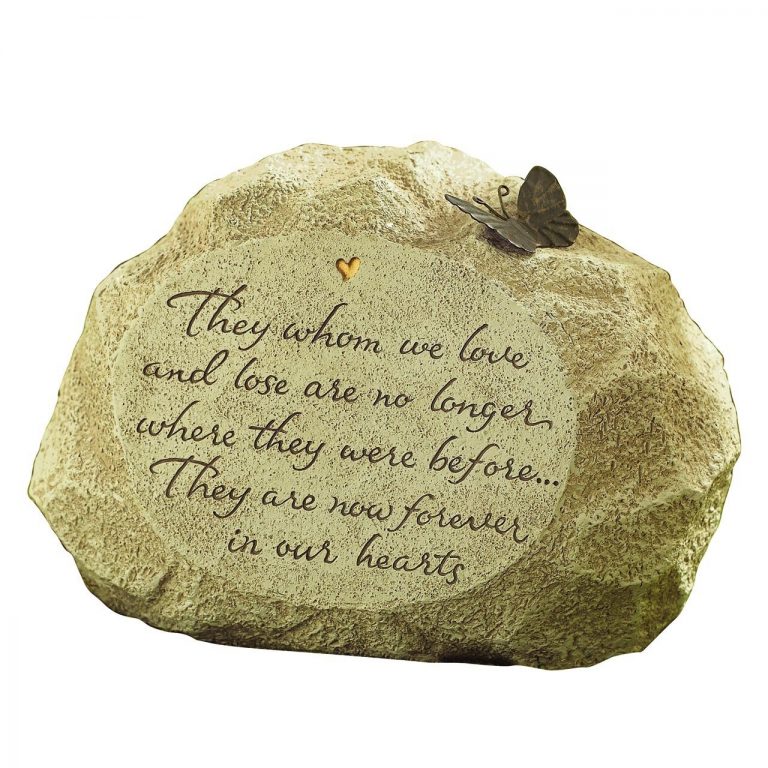 They whom we love
and lose are no longer
where they were before...
They are now forever
in our hearts